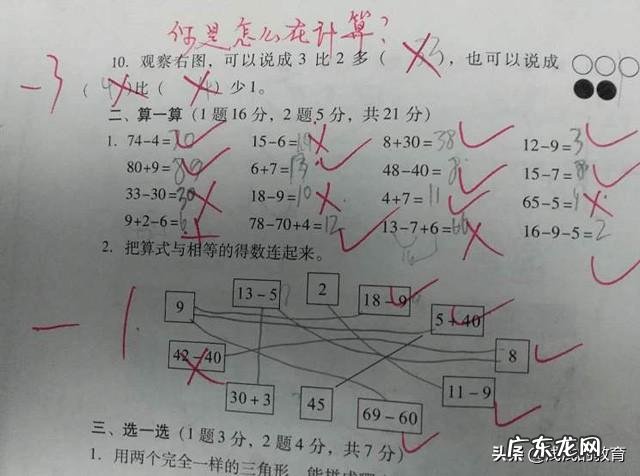 你是怎么在计算?
10. 观察右图，可以说成 3 比 2 多（ ），也可以说成
-3
（ ）比（ ）少 1。
二、算一算（1 题 16 分，2 题 5 分，共 21 分）
1. 74-4=70 15-6= 8+30=38 12-9=3
80+9=89 6+7=13 48-40=8 15-7=8
33-30=30 18-9=10 4+7=11 65-5=
9+2-6=6 78-70+4=12 13-7+6=66 16-9-5=2
2. 把算式与相等的得数连起来。
9 13-5 2 18-9 5+40
-1
42-40 8
30+3 45 69-60 11-9
三、选一选（1 题 3 分，2 题 4 分，共 7 分）
1. 用两个完全一样的三角形，能拼成
头条
广东龙网